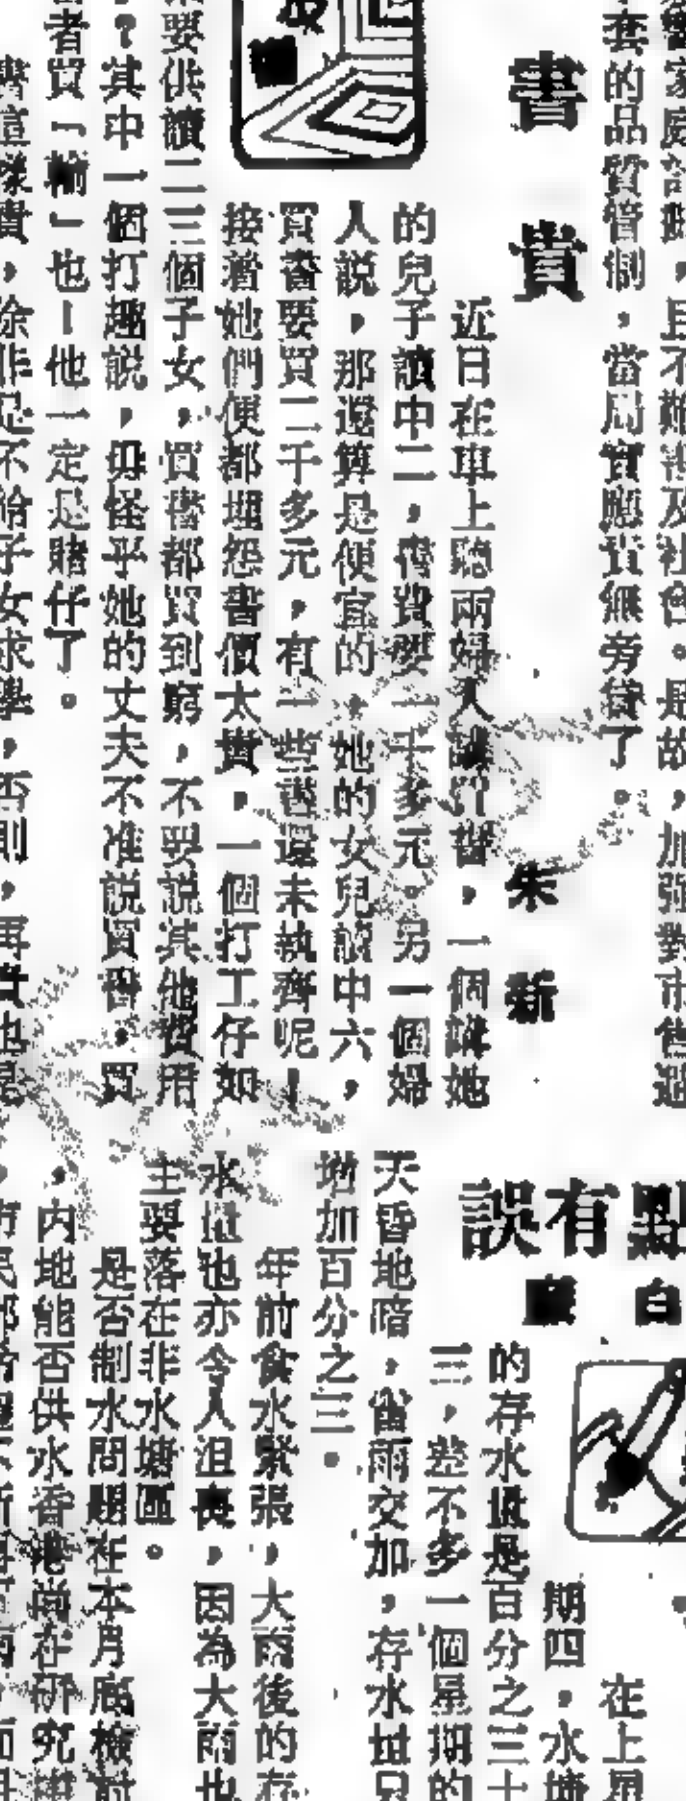 響家庭計劃,且不難害及社會。是故,加強對市售避
套的品質管制,當局實應責無旁貸了。
書貴
朱新
近日在車上聽兩婦人講買書,一個說她
的兒子讀中二,書費要一千多元。另一個婦
人說,那還算是便宜的,她的女兒讀中六,
買書要買二千多元,有一些書還未執齊呢!
接着她們便都埋怨書價太貴,一個打工仔如
要供讀二三個子女,買書都買到窮,不要說其他費用
?其中一個打趣說,毋怪乎她的丈夫不准說買書,買
者買「輸」也!他一定是賭仔了。
書這樣貴,除非是不給子女求學,否則,再貴也是
點有誤
白
在上星
期四,水塘
的存水量是百分之三十
三,差不多一個星期的
天昏地暗,雷雨交加,存水量只
增加百分之三。
年前食水緊張,大雨後的存
水量也亦令人沮喪,因為大雨也
主要落在非水塘區。
是否制水問題在本月底檢討
,內地能否供水香港尚在研究